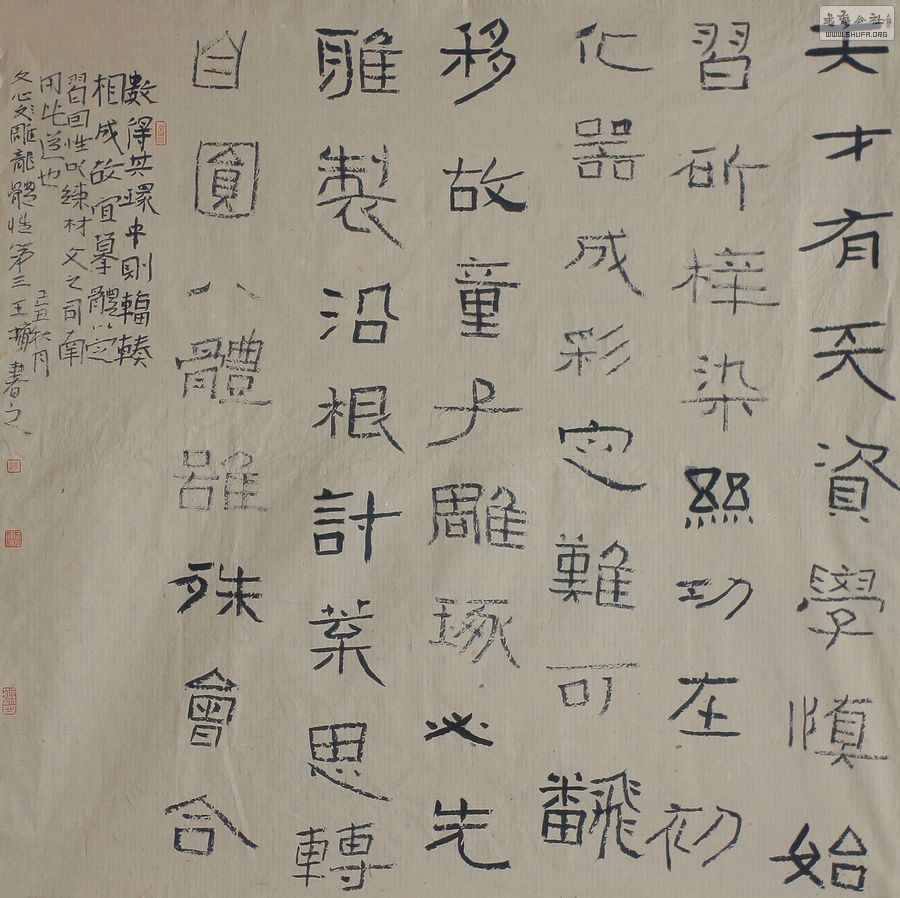 夫才有天資學慎始
習斫梓染絲功在初
化器成彩定難可飜
移故童子雕琢必先
雅製沿根討葉思轉
自圓八體雖殊會合
數得其環中則輻輳
相成故宜摹體以定
習因性以練材文之司南
用此道也 己丑秋月
文心雕龍體性第三 王書之
WWW.SHUFA.ORG